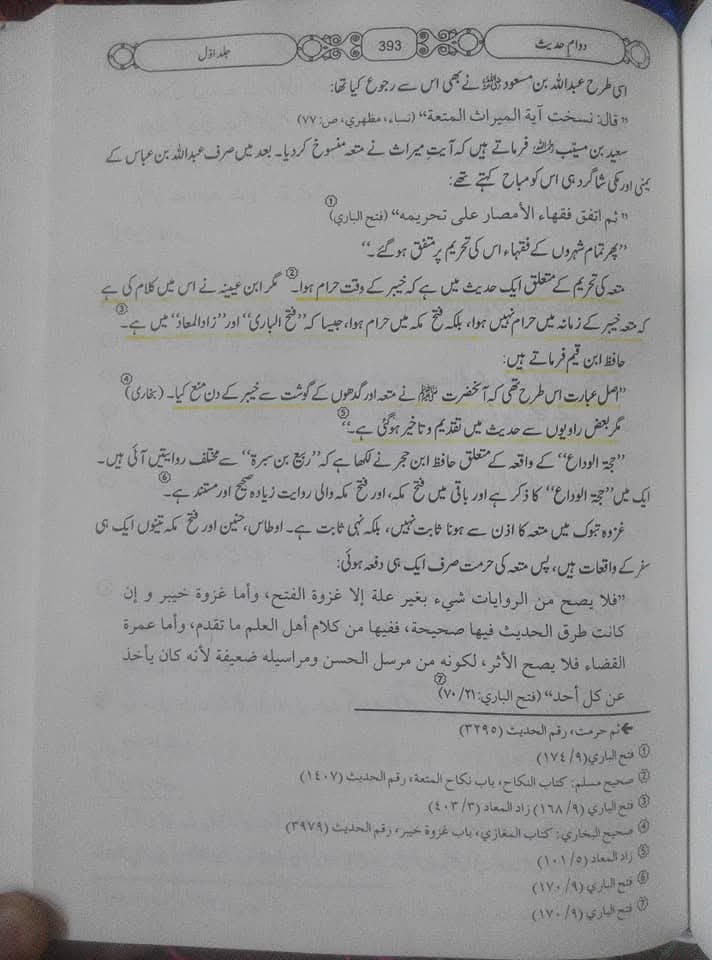 دوام حدیث
393
جلد اوّل
اسی طرح عبداللہ بن مسعود رضی اللہ عنہ نے بھی اس سے رجوع کیا تھا:
”قال: نسخت آية الميراث المتعة“ (نساء، مظهري، ص: ٧٧)
سعید بن مسیّب رحمہ اللہ فرماتے ہیں کہ آیتِ میراث نے متعہ منسوخ کر دیا۔ بعد میں صرف عبداللہ بن عباس کے
یمنی اور مکی شاگرد ہی اس کو مباح کہتے تھے:
”ثم اتفق فقهاء الأمصار على تحريمه“ (فتح الباري)①
”پھر تمام شہروں کے فقہاء اس کی تحریم پر متفق ہو گئے۔“
متعہ کی تحریم کے متعلق ایک حدیث میں ہے کہ خیبر کے وقت حرام ہوا۔② مگر ابن عیینہ نے اس میں کلام کی ہے
کہ متعہ خیبر کے زمانہ میں حرام نہیں ہوا، بلکہ فتح مکہ میں حرام ہوا، جیسا کہ ”فتح الباری“ اور ”زاد المعاد“ میں ہے۔③
حافظ ابن قیم فرماتے ہیں:
”اصل عبارت اس طرح تھی کہ آنحضرت ﷺ نے متعہ اور گدھوں کے گوشت سے خیبر کے دن منع کیا۔ (بخاری)④
مگر بعض راویوں سے حدیث میں تقدیم و تاخیر ہو گئی ہے۔“⑤
”حجۃ الوداع“ کے واقعہ کے متعلق حافظ ابن حجر نے لکھا ہے کہ ”ربیع بن سبرۃ“ سے مختلف روایتیں آئی ہیں۔
ایک میں ”حجۃ الوداع“ کا ذکر ہے اور باقی میں فتح مکہ، اور فتح مکہ والی روایت زیادہ صحیح اور مستند ہے۔⑥
غزوہ تبوک میں متعہ کا اذن سے ہونا ثابت نہیں، بلکہ نہی ثابت ہے۔ اوطاس، حنین اور فتح مکہ تینوں ایک ہی
سفر کے واقعات ہیں، پس متعہ کی حرمت صرف ایک ہی دفعہ ہوئی:
”فلا يصح من الروايات شيء بغير علة إلا غزوة الفتح، وأما غزوة خيبر و إن
كانت طرق الحديث فيها صحيحة، ففيها من كلام أهل العلم ما تقدم، وأما عمرة
القضاء فلا يصح الأثر، لكونه من مرسل الحسن ومراسيله ضعيفة لأنه كان يأخذ
عن كل أحد“ (فتح الباري: ٢١/ ٧٠)⑦
← ثم حرمت، رقم الحديث (٣٢٩٥)
① فتح الباري (٩/ ١٧٤)
② صحيح مسلم: كتاب النكاح، باب نكاح المتعة، رقم الحديث (١٤٠٧)
③ فتح الباري (٩/ ١٦٨) زاد المعاد (٣/ ٤٠٣)
④ صحيح البخاري: كتاب المغازي، باب غزوة خيبر، رقم الحديث (٣٩٧٩)
⑤ زاد المعاد (٥/ ١٠١)
⑥ فتح الباري (٩/ ١٧٠)
⑦ فتح الباري (٩/ ١٧٠)